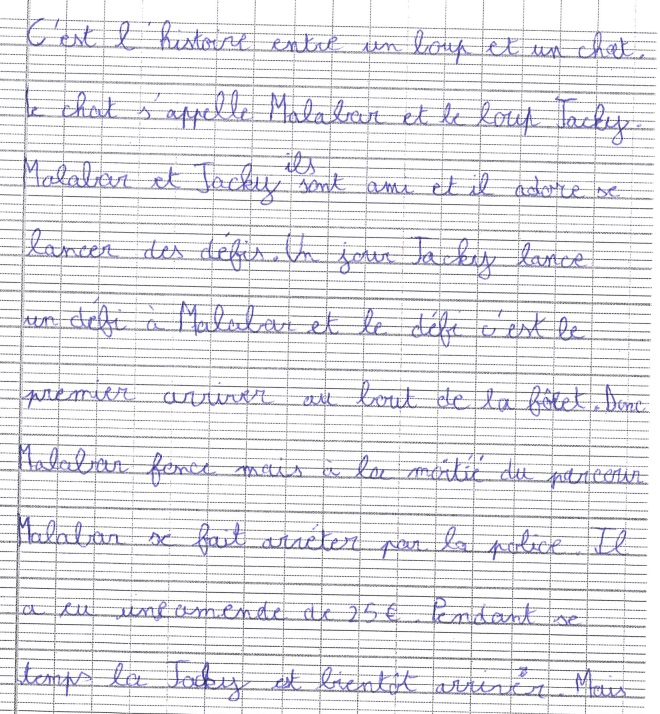 C'est l'histoire entre un loup et un chat.
le chat s'appelle Malabar et le loup Jacky.
Malabar et Jacky ils sont ami et il adore se
lancer des défis. Un jour Jacky lance
un défi à Malabar et le défi c'est le
premier arriver au bout de la fôret. Donc
Malabar fonce mais à la moitié du parcour
Malabar se fait arrêter par la police. Il
a eu une amende de 25€. Pendant se
temps la Jacky et bientôt arrivér. Mais